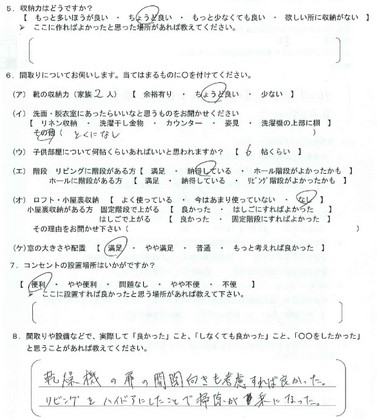 ５．収納力はどうですか？
【 もっと多いほうが良い ・ ちょうど良い ・ もっと少なくても良い ・ 欲しい所に収納がない 】
➢ ここに作ればよかったと思った場所があれば教えてください。
６．間取りについてお伺いします。当てはまるものに○を付けてください。
（ア） 靴の収納力（家族 2 人） 【 余裕有り ・ ちょうど良い ・ 少ない 】
（イ） 洗面・脱衣室にあったらいいなと思うものをお聞かせください
【 リネン収納 ・ 洗濯干し金物 ・ カウンター ・ 姿見 ・ 洗濯機の上部に棚 】
その他（ とくになし ）
（ウ） 子供部屋について何帖くらいあればいいと思われますか？ 【 6 帖くらい 】
（エ） 階段 リビングに階段がある方【 満足 ・ 納得している ・ ホール階段がよかったかも 】
ホールに階段がある方【 満足 ・ 納得している ・ リビング階段がよかったかも 】
（オ） ロフト・小屋裏収納 【 よく使っている ・ 今はあまり使っていない ・ なし 】
小屋裏収納がある方 固定階段で上がる【 良かった ・ はしごにすればよかった 】
はしごで上がる【 良かった ・ 固定階段にすればよかった 】
その理由をお聞かせ下さい（ ）
（ケ）窓の大きさや配置 【 満足 ・ やや満足 ・ 普通 ・ もっと考えれば良かった 】
７．コンセントの設置場所はいかがですか？
【 便利 ・ やや便利 ・ 問題なし ・ やや不便 ・ 不便 】
➢ ここに設置すれば良かったと思う場所があれば教えて下さい。
８．間取りや設備などで、実際して「良かった」こと、「しなくても良かった」こと、「○○をしたかった」
と思うことがあれば教えてください。
乾燥機の扉の開閉向きも考慮すれば良かった。
リビングをハイドアにしたことで掃除が楽になった。